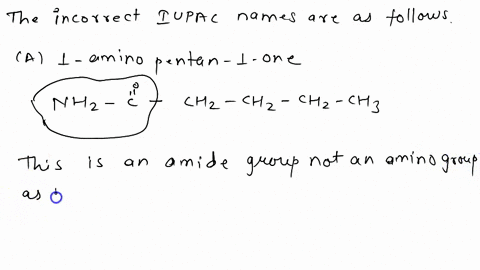 The incorrect IUPAC names are as follows.
(A) 1-amino pentan-1-one
NH2 - C(=O) - CH2 - CH2 - CH2 - CH3
This is an amide group not an amino group
as